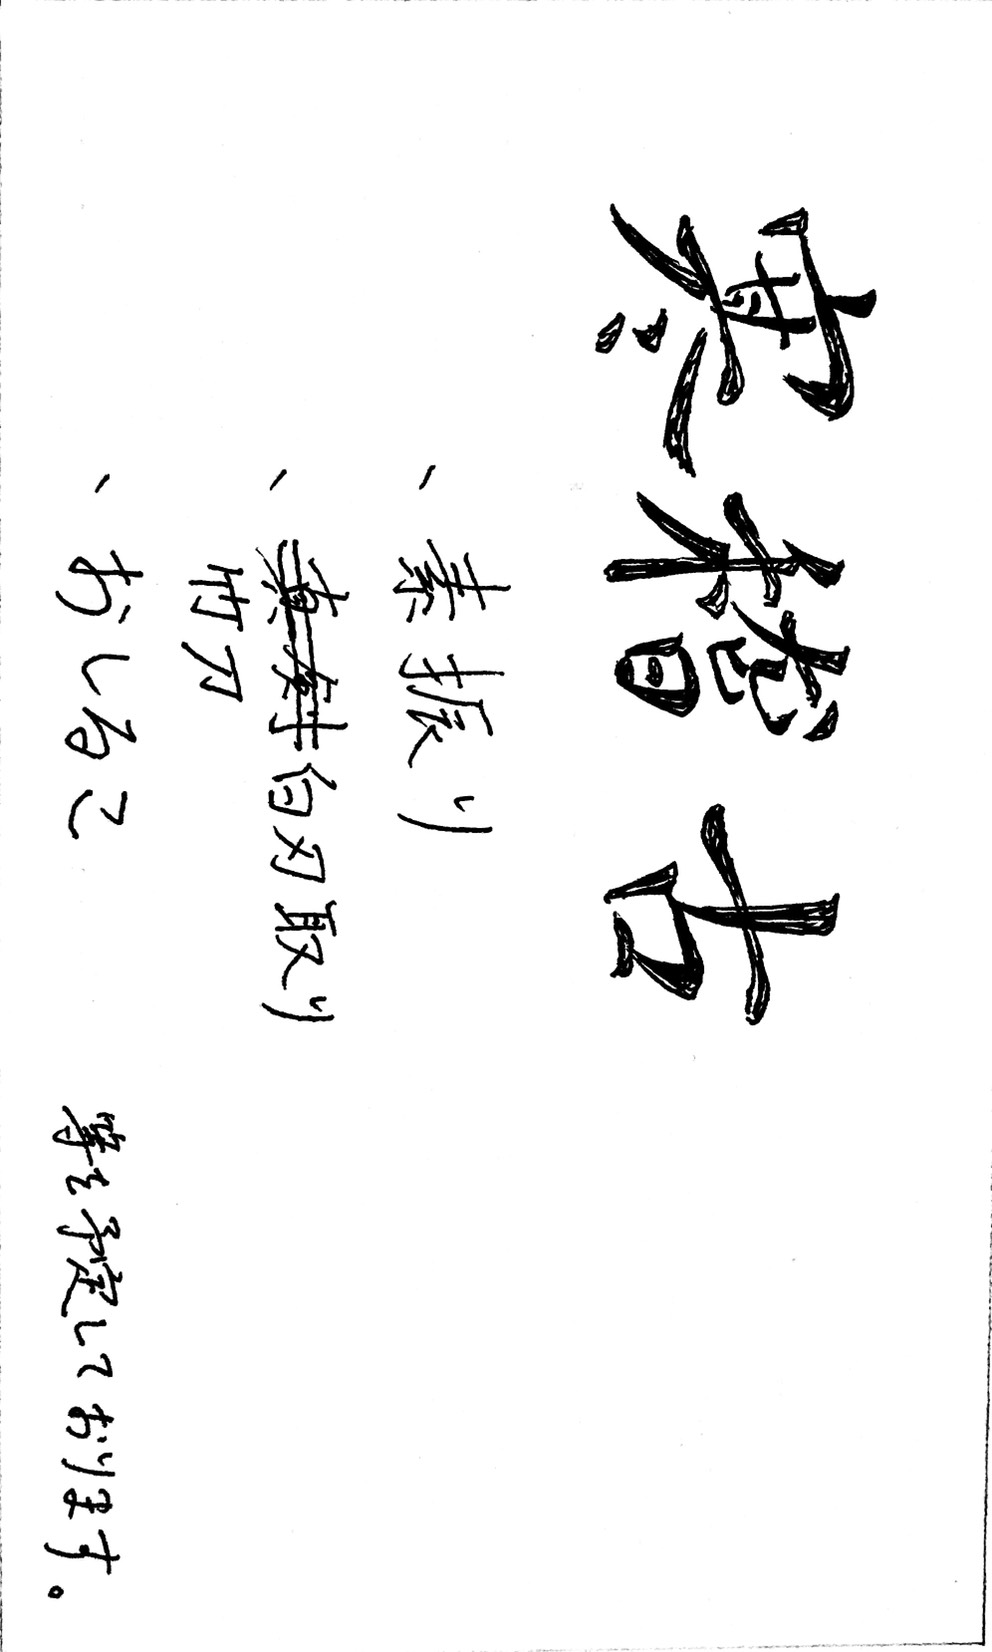 寒稽古
、素振り
、真剣白刃取り
竹刀
、おしるこ
等を予定しております。